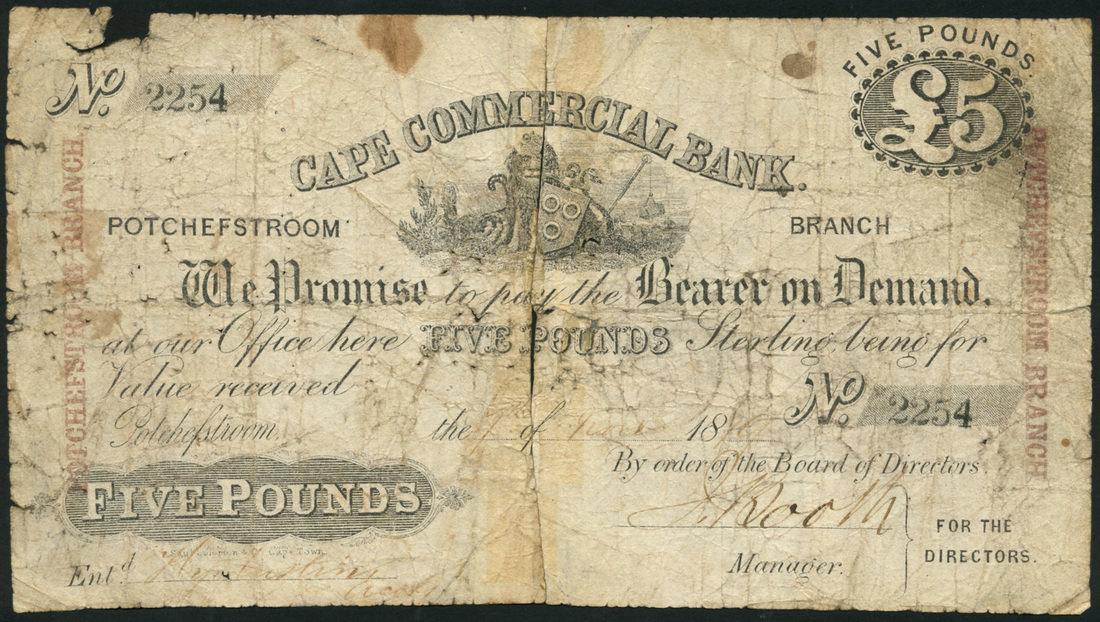 FIVE POUNDS.
£5
No. 2254
CAPE COMMERCIAL BANK.
POTCHEFSTROOM BRANCH
We Promise to pay the Bearer on Demand.
at our Office here FIVE POUNDS Sterling, being for
Value received
No. 2254
Potchefstroom. the of 18
By order of the Board of Directors.
FIVE POUNDS
Rooth
FOR THE
DIRECTORS.
CAPE TOWN
Entd
Manager.
POTCHEFSTROOM BRANCH.
POTCHEFSTROOM BRANCH